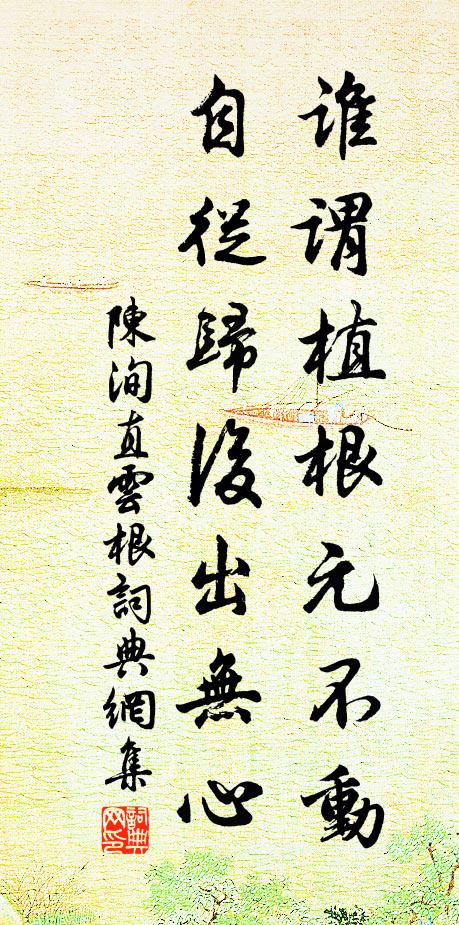 誰謂植根元不動
自從歸後出無心
陳洵直雲根詞典網集
詞典網印